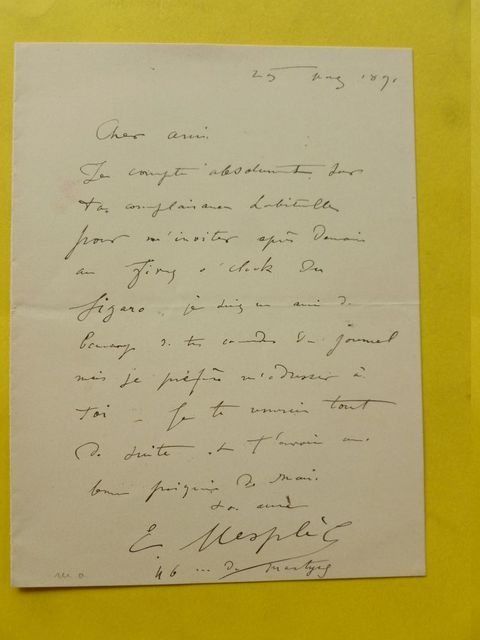 25 mars 1891
Cher ami.
Je compte absolument sur
ta complaisance habituelle
pour m'inviter après demain
au Five o'clock du
Figaro je suis un ami de
beaucoup de tes camarades du journal
mais je préfère m'adresser à
toi – Je te remercie tout
de suite et t'envoie une
bonne poignée de main.
ton ami
E Mesplès
46 ... des Martyrs